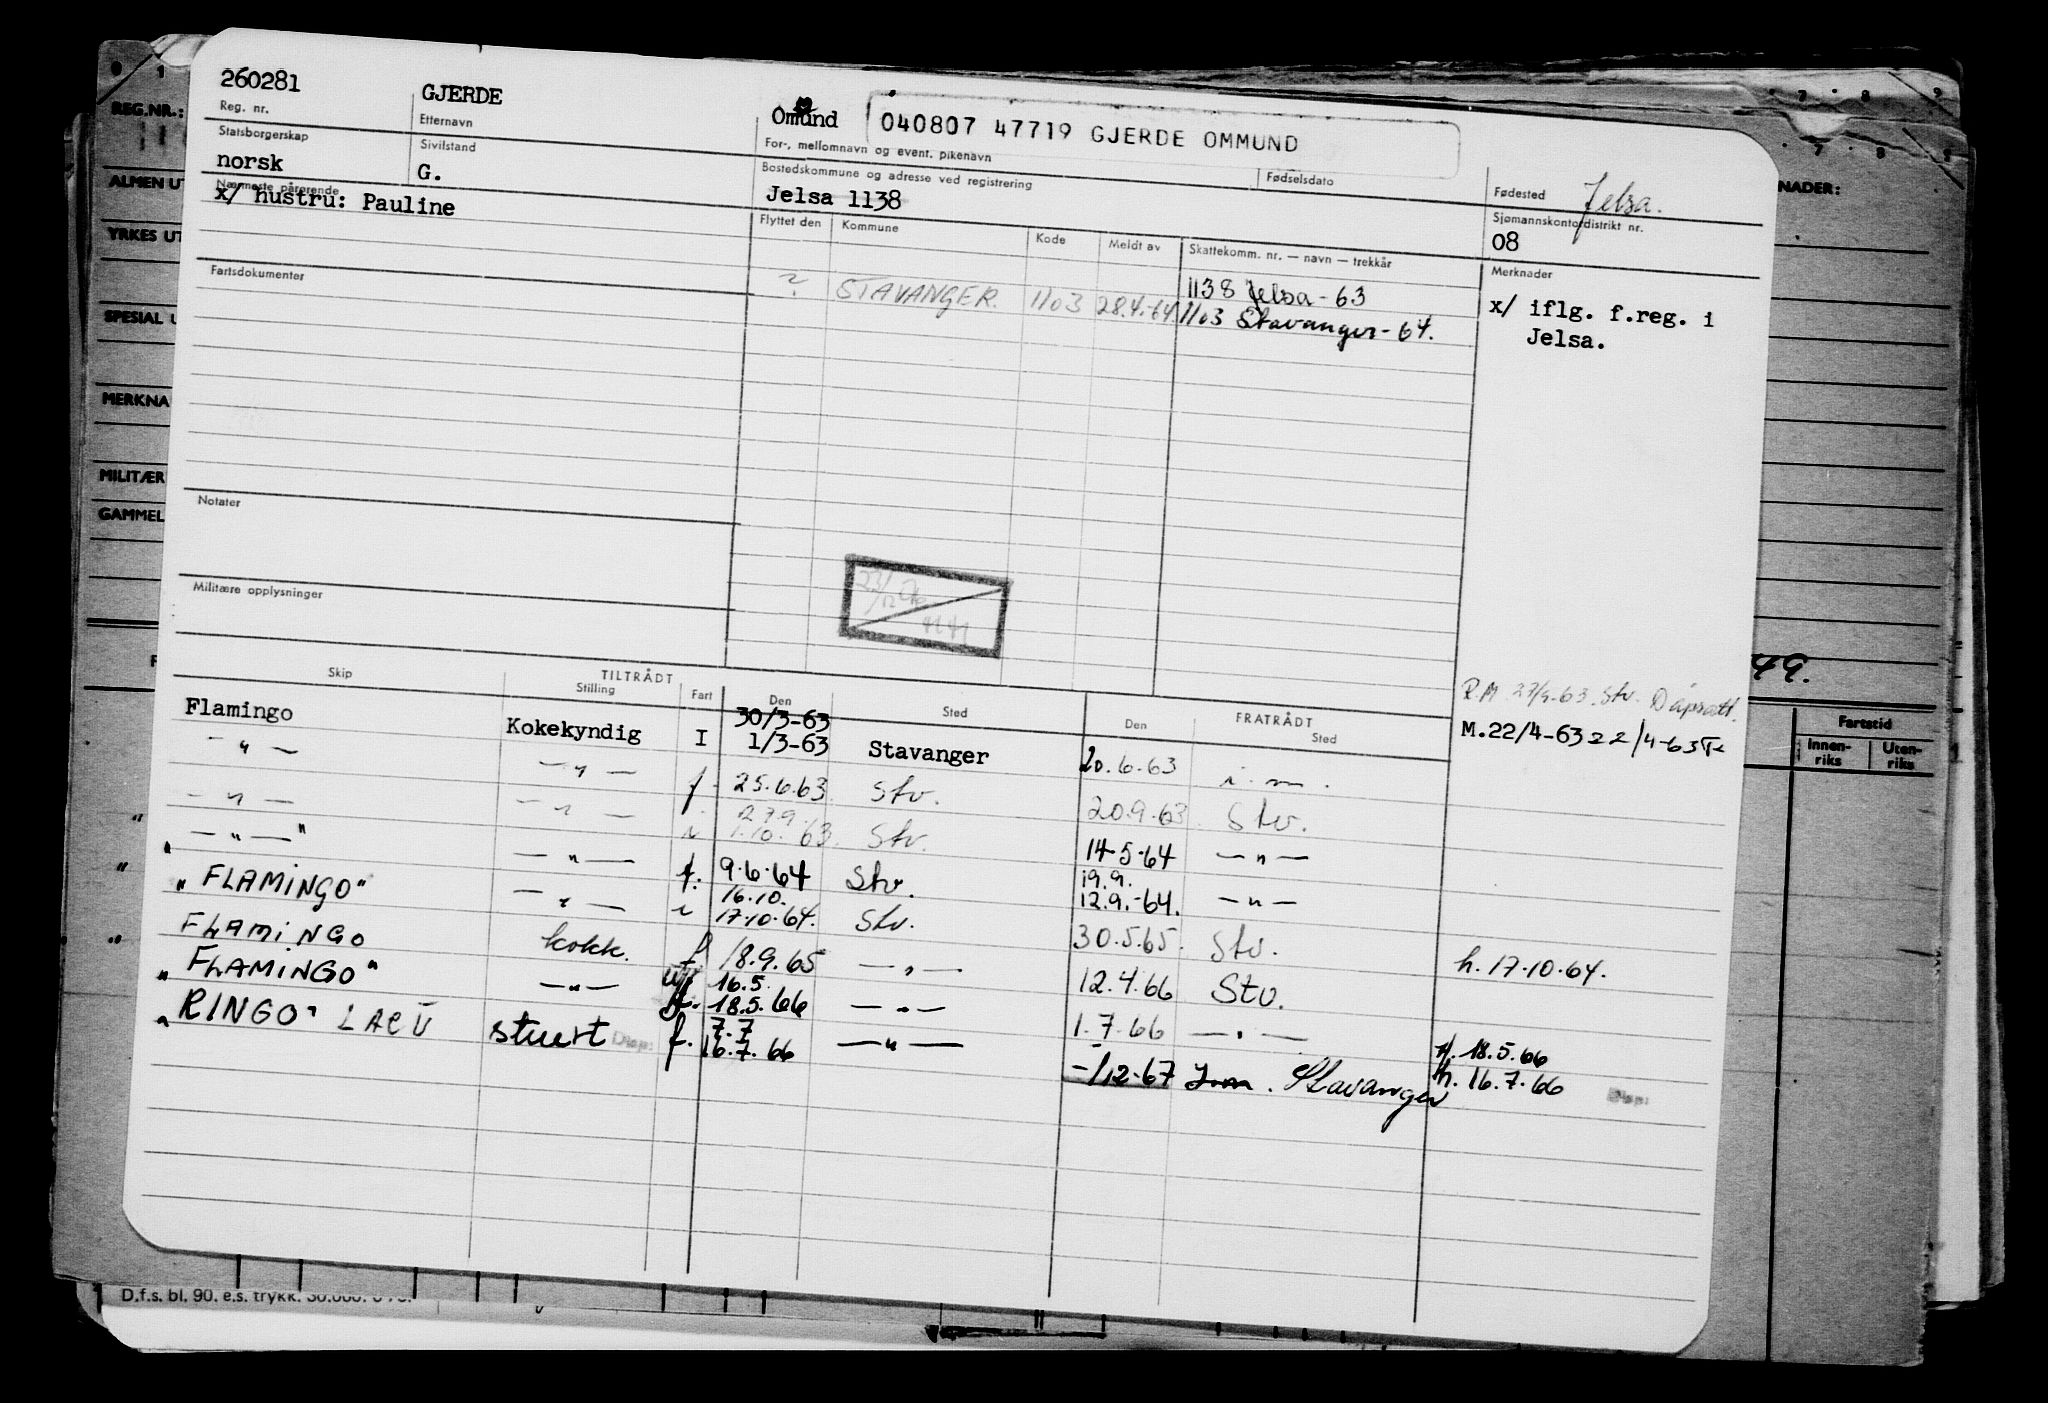 260281
GJERDE
Ommund
040807 47719 GJERDE OMMUND
Reg. nr.
Etternavn
For-, mellomnavn og event. pikenavn
Statsborgerskap
Sivilstand
Bostedskommune og adresse ved registrering
Fødselsdato
Fødested
Jelsa.
norsk
G.
Jelsa 1138
Sjømannskontordistrikt nr.
08
Nærmeste pårørende
x/ hustru: Pauline
Flyttet den
Kommune
Kode
Meldt av
Skattekomm. nr. — navn — trekkår
Merknader
Fartsdokumenter
1138 Jelsa - 63
? STAVANGER. 1103 28.4.-64. 1103 Stavanger - 64.
x/ iflg. f.reg. i
Jelsa.
Notater
23/12
Militære opplysninger
Skip
TILTRÅDT
Stilling
Fart
Den
Sted
FRATRÅDT
Den
Sted
R.M 27/9-63. Stv.
Flamingo Kokekyndig I 30/3-63
1/3-63 Stavanger 20.6.63 i.m. M.22/4-63 22/4-63
— " — — " — f. 25.6.63 Stv. 20.9.63 Stv.
— " — — " — i 27.9.
1.10.63 Stv. 14-5-64 — " —
— " — " — " — f. 9.6.64 Stv. 19.9.
12.9.-64. — " —
"FLAMINGO" — " — i 16.10.
17.10.64. Stv. 30.5.65. Stv. h. 17.10.64.
FLAMINGO kokk. f. 18.9.65 — " — 12.4.66 Stv.
"FLAMINGO" — " — 16.5.
18.5.66 — " — 1.7.66 — " — 18.5.66
"RINGO" LACU stuert Disp: f. 7.7
16.7.66 — " — -/12-67 Stavanger h. 16.7.66 Disp:
REG.NR.:
ALMEN UT
YRKES UT
SPESIAL U
MERKNA
MILITÆR
GAMMEL
F
NADER:
49.
Fartstid
Innen-
riks
Uten-
riks
D.f.s. bl. 90. e.s. trykk.